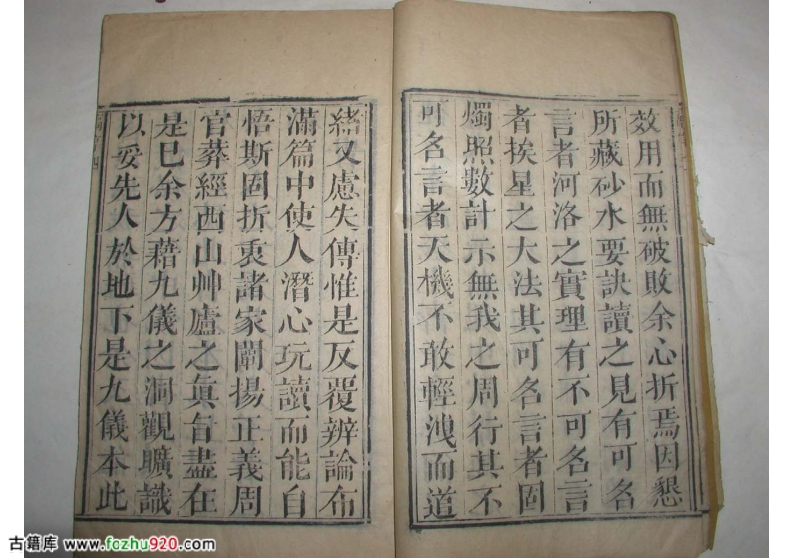 效用而無破敗余心折焉因懇
所藏砂水要訣讀之見有可名
言者河洛之實理有不可名言
者挨星之大法其可名言者固
燭照數計示無我之周行其不
可名言者天機不敢輕洩而道
緒又慮失傳惟是反覆辨論布
滿篇中使人潛心玩讀而能自
悟斯固折衷諸家闡揚正義周
官葬經西山艸廬之眞旨盡在
是巳余方藉九儀之洞觀曠識
以妥先人於地下是九儀本此
古籍库 www.fczhu920.com